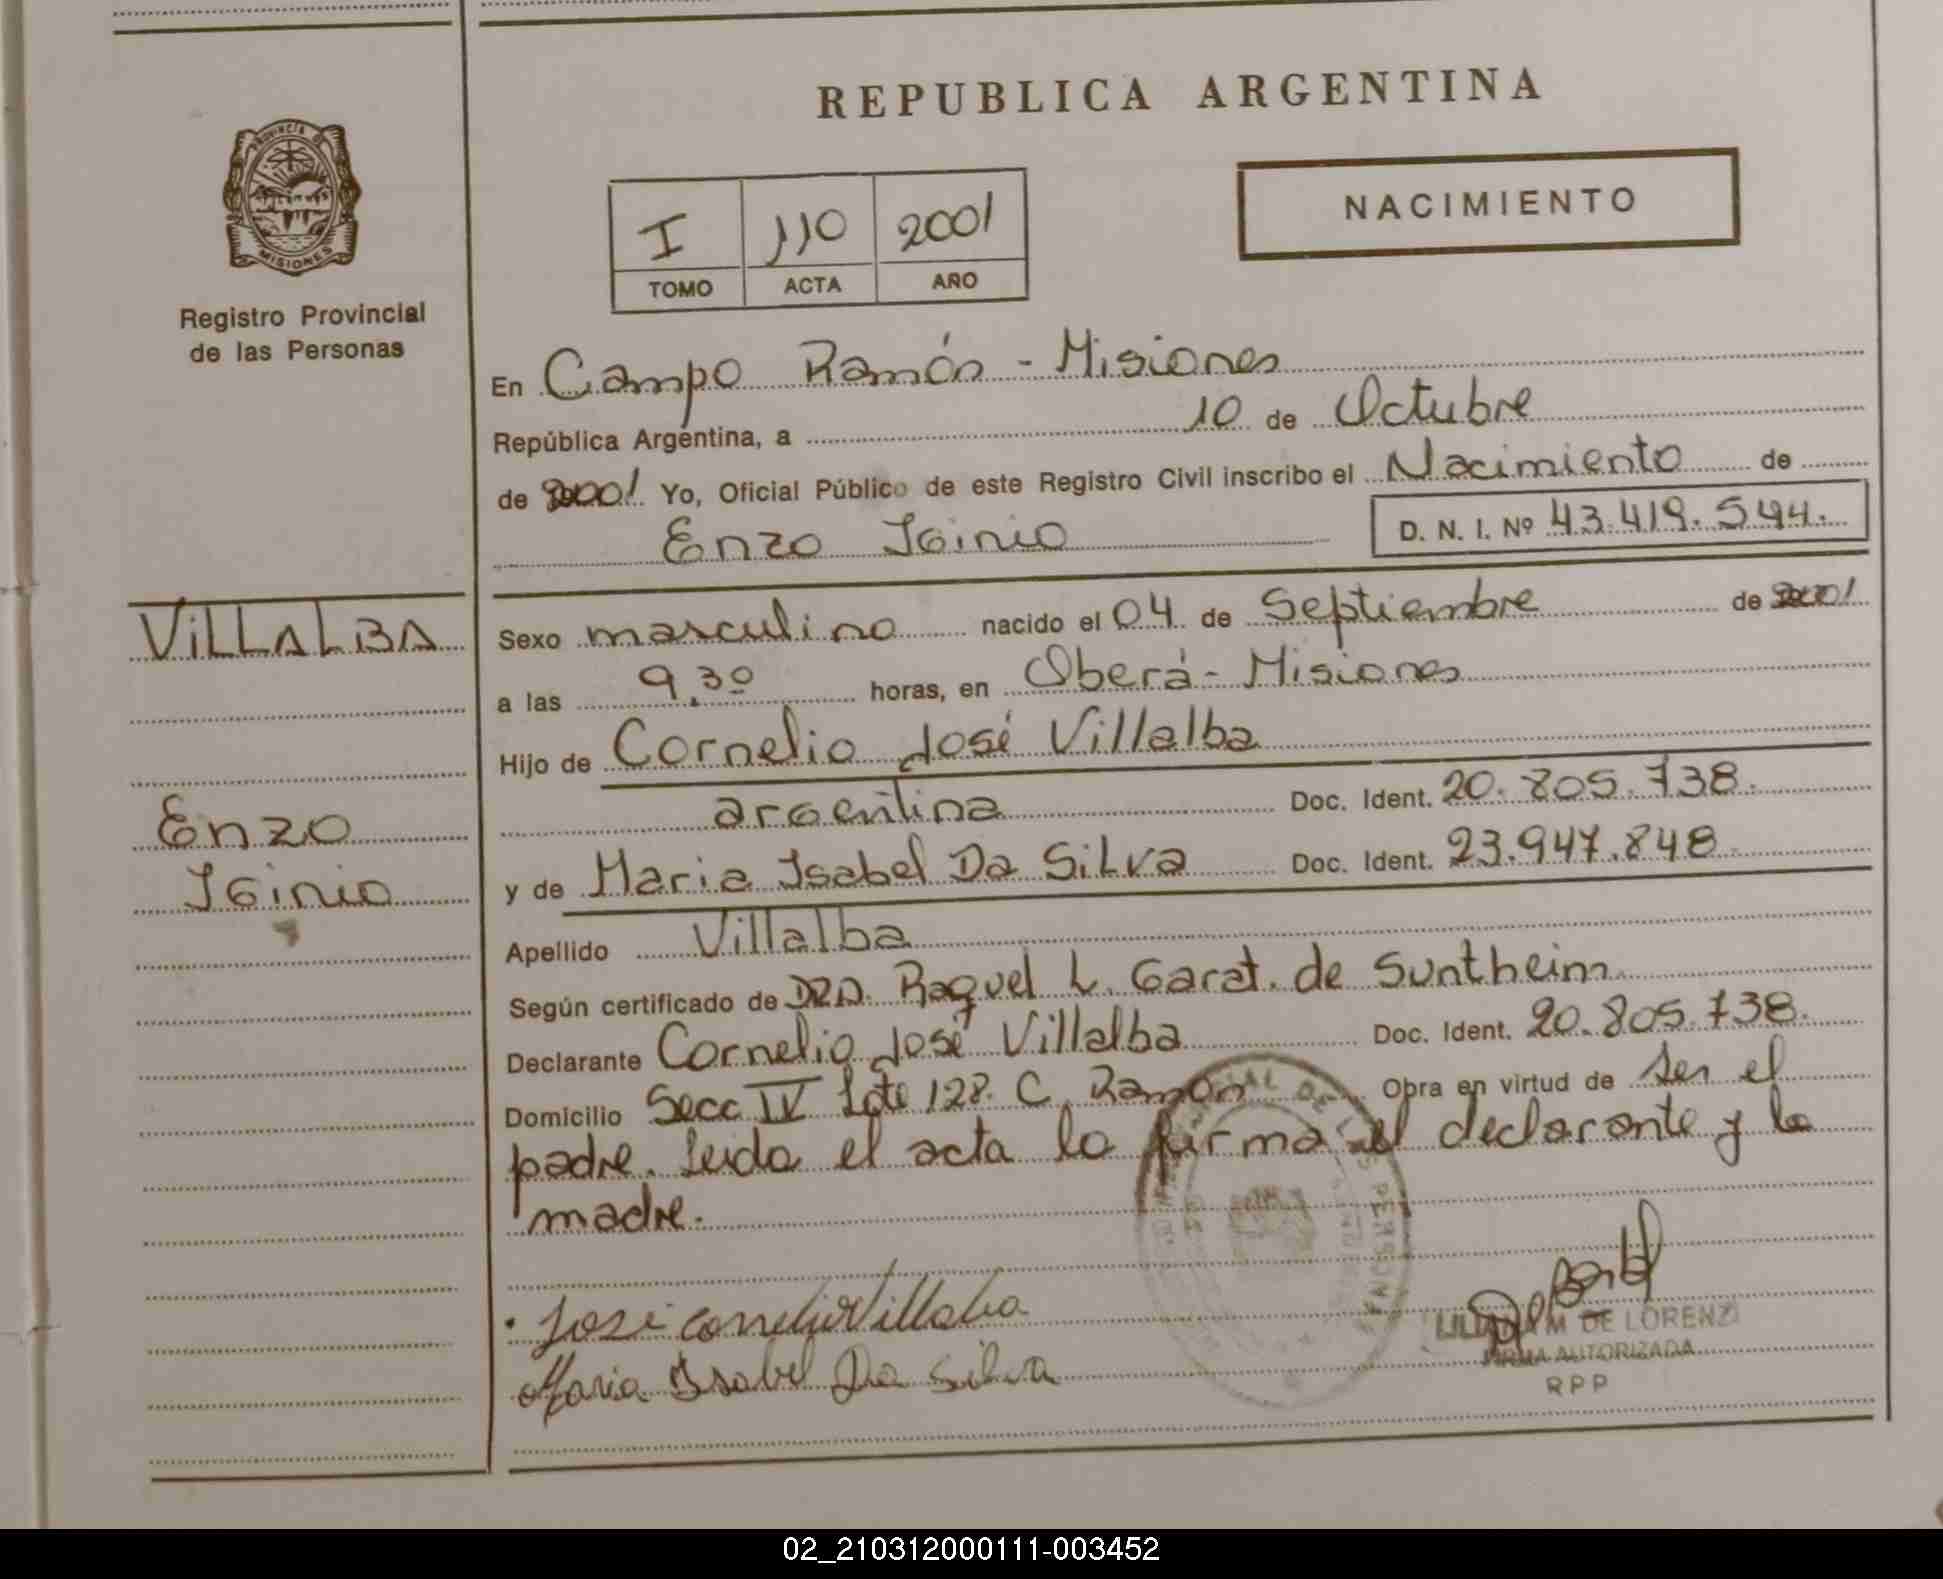 REPUBLICA ARGENTINA
PROVINCIA DE
MISIONES
Registro Provincial
de las Personas
I 110 2001
TOMO ACTA AÑO
NACIMIENTO
En Campo Ramón - Misiones
República Argentina, a 10 de Octubre
de 2001 Yo, Oficial Público de este Registro Civil inscribo el Nacimiento de
Enzo Iginio D. N. I. Nº 43.419.544.
VILLALBA
Enzo
Iginio
Sexo masculino nacido el 04 de Septiembre de 2001
a las 9.30 horas, en Oberá - Misiones
Hijo de Cornelio José Villalba
argentina Doc. Ident. 20.805.738.
y de Maria Isabel Da Silva Doc. Ident. 23.947.848
Apellido Villalba
Según certificado de DRA. Raquel L. Garat. de Suntheim
Declarante Cornelio José Villalba Doc. Ident. 20.805.738.
Domicilio Secc IV Lote 128. C. Ramón Obra en virtud de ser el
padre. Leida el acta la firma el declarante y la
madre.
Jose Cornelio Villalba
Maria Isabel Da Silva
DE LORENZI
FIRMA AUTORIZADA
RPP
02_210312000111-003452